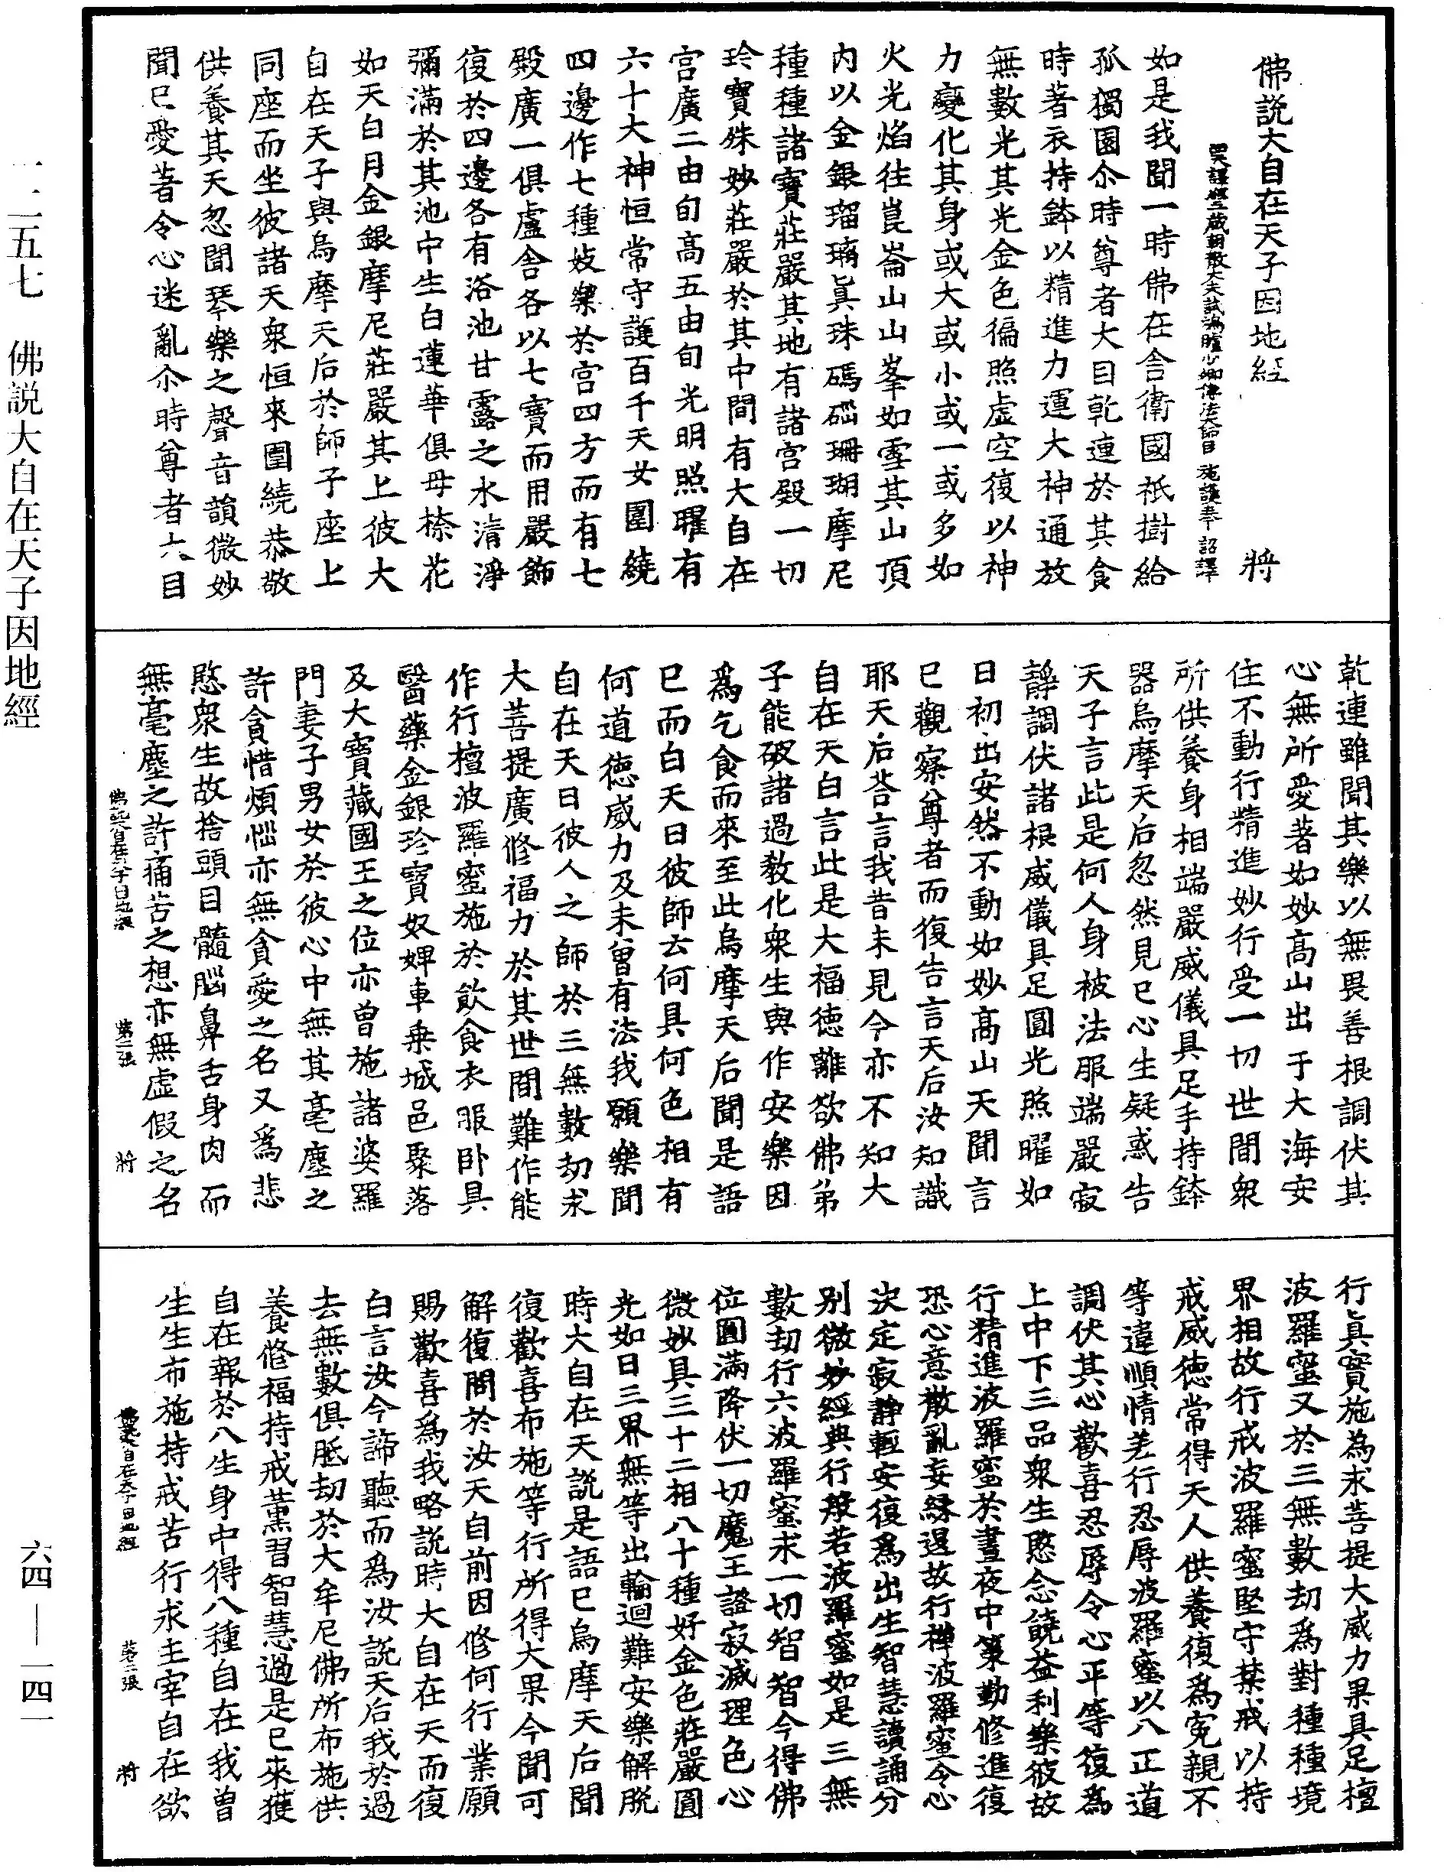 佛説大自在天子因地經 將
西天譯經三藏朝散大夫試鴻臚少卿傳法大師臣施護奉 詔譯
如是我聞一時佛在舍衛國祇樹給
孤獨園尒時尊者大目乾連於其食
時著衣持鉢以精進力運大神通放
無數光其光金色徧照虛空復以神
力變化其身或大或小或一或多如
火光焰往崑崙山山峯如雪其山頂
内以金銀瑠璃眞珠碼碯珊瑚摩尼
種種諸寶莊嚴其地有諸宮殿一切
玲寶殊妙莊嚴於其中間有大自在
宮廣二由旬高五由旬光明照曜有
六十大神恒常守護百千天女圍繞
四邊作七種妓樂於宮四方而有七
殿廣一俱盧舍各以七寶而用嚴飾
復於四邊各有浴池甘露之水清淨
彌滿於其池中生白蓮華俱母㮈花
如天白月金銀摩尼莊嚴其上彼大
自在天子與烏摩天后於師子座上
同座而坐彼諸天衆恒來圍繞恭敬
供養其天忽聞琴樂之聲音韻微妙
聞已愛著令心迷亂尒時尊者大目
乾連雖聞其樂以無畏善根調伏其
心無所愛著如妙高山出于大海安
住不動行精進妙行受一切世間衆
所供養身相端嚴威儀具足手持鉢
器烏摩天后忽然見已心生疑惑告
天子言此是何人身被法服端嚴寂
靜調伏諸根威儀具足圓光照曜如
日初出安然不動如妙高山天聞言
已觀察尊者而復告言天后汝知識
耶天后荅言我昔未見今亦不知大
自在天白言此是大福德離欲佛弟
子能破諸過教化衆生與作安樂因
爲乞食而來至此烏摩天后聞是語
已而白天曰彼師云何具何色相有
何道德威力及未曾有法我願樂聞
自在天曰彼人之師於三無數劫求
大菩提廣修福力於其世間難作能
作行檀波羅蜜施於飲食衣服卧具
醫藥金銀珍寶奴婢車乘城邑聚落
及大寶藏國王之位亦曾施諸婆羅
門妻子男女於彼心中無其毫塵之
許貪惜煩惱亦無貪愛之名又爲悲
愍衆生故捨頭目髓腦鼻舌身肉而
無毫塵之許痛苦之想亦無虛假之名
佛説大自在天子因地經 第二張 將
行眞實施為求菩提大威力果具足檀
波羅蜜又於三無數劫爲對種種境
界相故行戒波羅蜜堅守禁戒以持
戒威德常得天人供養復爲寃親不
等違順情差行忍辱波羅蜜以八正道
調伏其心歡喜忍辱令心平等復爲
上中下三品衆生愍念饒益利樂彼故
行精進波羅蜜於晝夜中策勤修進復
恐心意散亂妄緣退故行禪波羅蜜令心
決定寂靜輕安復爲出生智慧讀誦分
别微妙經典行般若波羅蜜如是三無
數劫行六波羅蜜求一切智智今得佛
位圓滿降伏一切魔王證寂滅理色心
微妙具三十二相八十種好金色莊嚴圓
光如日三界無等出輪迴難安樂解脱
時大自在天説是語已烏摩天后聞
復歡喜布施等行所得大果今聞可
解復問於汝天自前因修何行業願
賜歡喜爲我略説時大自在天而復
白言汝今諦聽而爲汝説天后我於過
去無數俱胝劫於大牟尼佛所布施供
養修福持戒薰習智慧過是已來獲
自在報於八生身中得八種自在我曾
生生布施持戒苦行求主宰自在欲
佛説大自在天子因地經 第三張 將
一二五七 佛説大自在天子因地經
六四—一四一